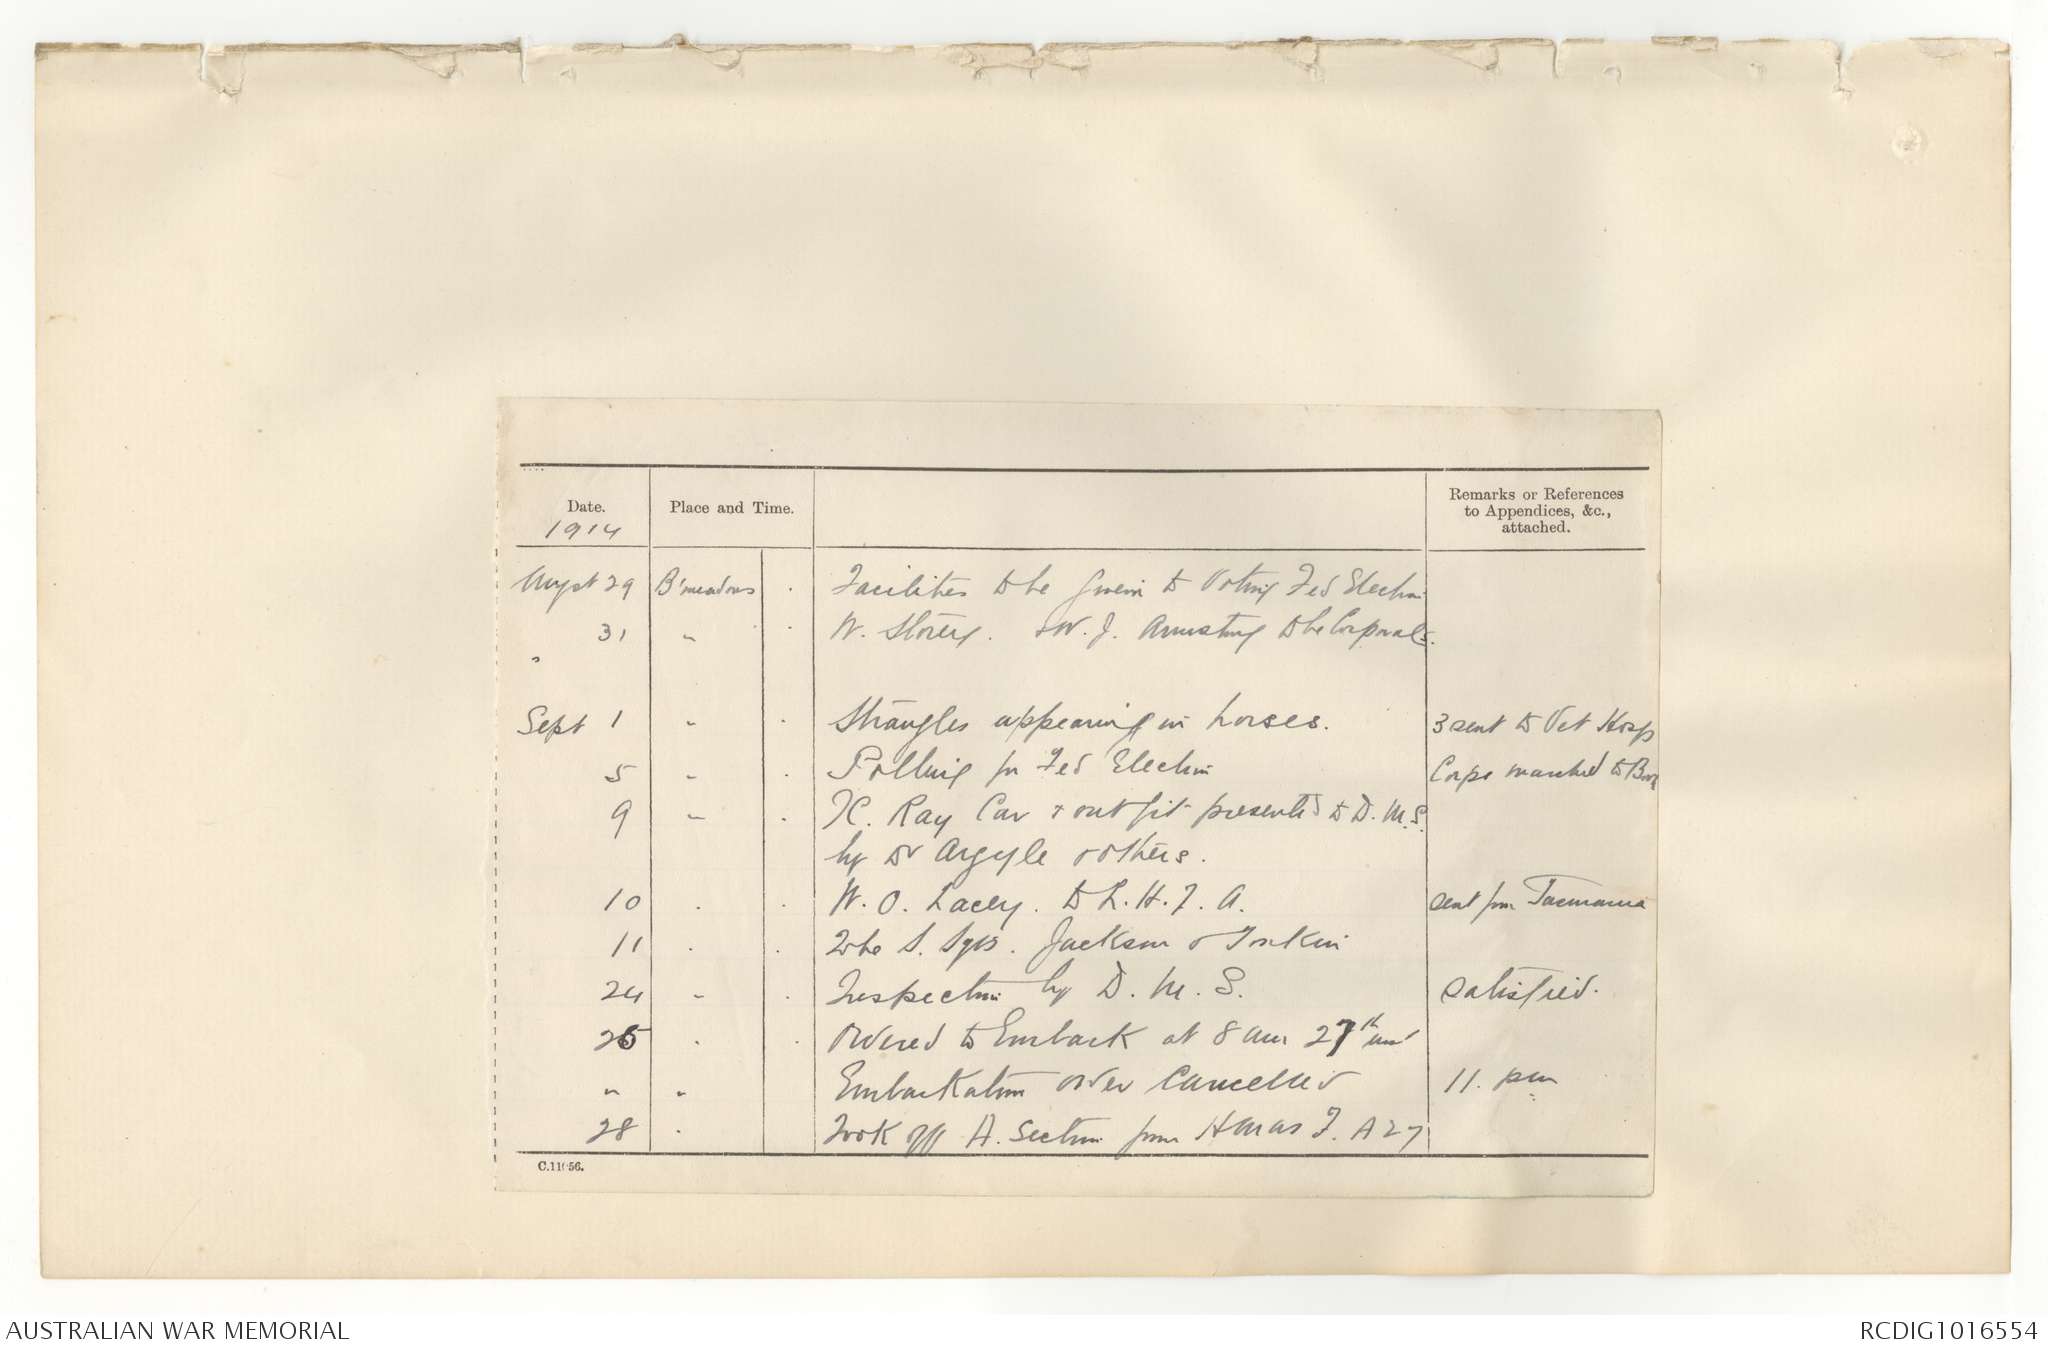 Date.
1914
Place and Time.
Remarks or References
to Appendices, &c.,
attached.
August 29 B'meadows Facilities to be given to Voting Fed Election
31 " W. Storey. & W. J. Armstrong to be Corporals.
"
Sept 1 " Strangles appearing in horses. 3 sent to Vet Hosp
5 " Polling for Fed Election Corps marched to
9 " X. Ray Car & outfit presented to D. M. S.
by Dr Argyle & others.
10 W. O. Lacey. to L. H. F. A. sent from Tasmania
11 To be S. Sgts. Jackson & Tonkin
24 " Inspection by D. M. S. satisfied.
25 Ordered to Embark at 8 am 27th
" " Embarkation order cancelled 11. pm
28 Took off A. Section from A 27
C.11056.
AUSTRALIAN WAR MEMORIAL
RCDIG1016554